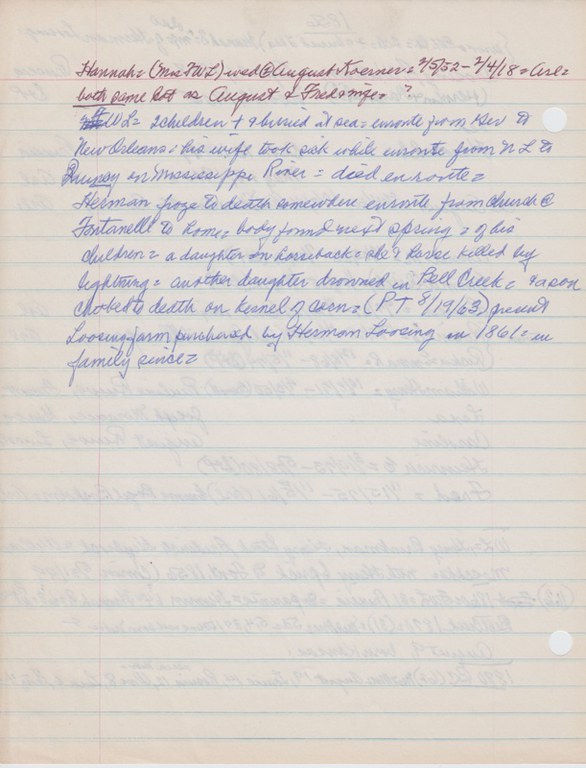 Hannah = (Mrs FWL) wed @ August Koerner = 7/5/52 - 7/4/18 = Arl =
both same lot as August & Fredonyes = ?
FWL = 2 children + & buried at sea = enroute from Ger to
New Orleans, his wife took sick while enroute from N L to
on Mississippi River = died enroute =
Herman froze to death somewhere enroute from church @
Fontanelle to home, body found next spring = of his
children = a daughter on horseback = she & horse killed by
lightning = another daughter drowned in Bell Creek = & a son
choked to death on kernel of corn = (PT 8/19/63) present
Loosing farm purchased by Herman Loosing in 1861 = in
family since =